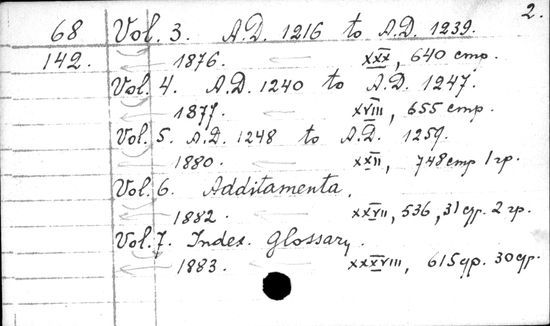 2.
68 Vol. 3. A.D. 1216 to A.D. 1239.
142. 1876. xxx, 640 стр.
Vol. 4. A.D. 1240 to A.D. 1247.
1877. xviii, 655 стр.
Vol. 5. A.D. 1248 to A.D. 1259.
1880. xxii, 748 стр 1 гр.
Vol. 6. Additamenta.
1882. xxvii, 536, 31 ср. 2 гр.
Vol. 7. Index. Glossary.
1883. xxxviii, 615 ср. 30 ср.